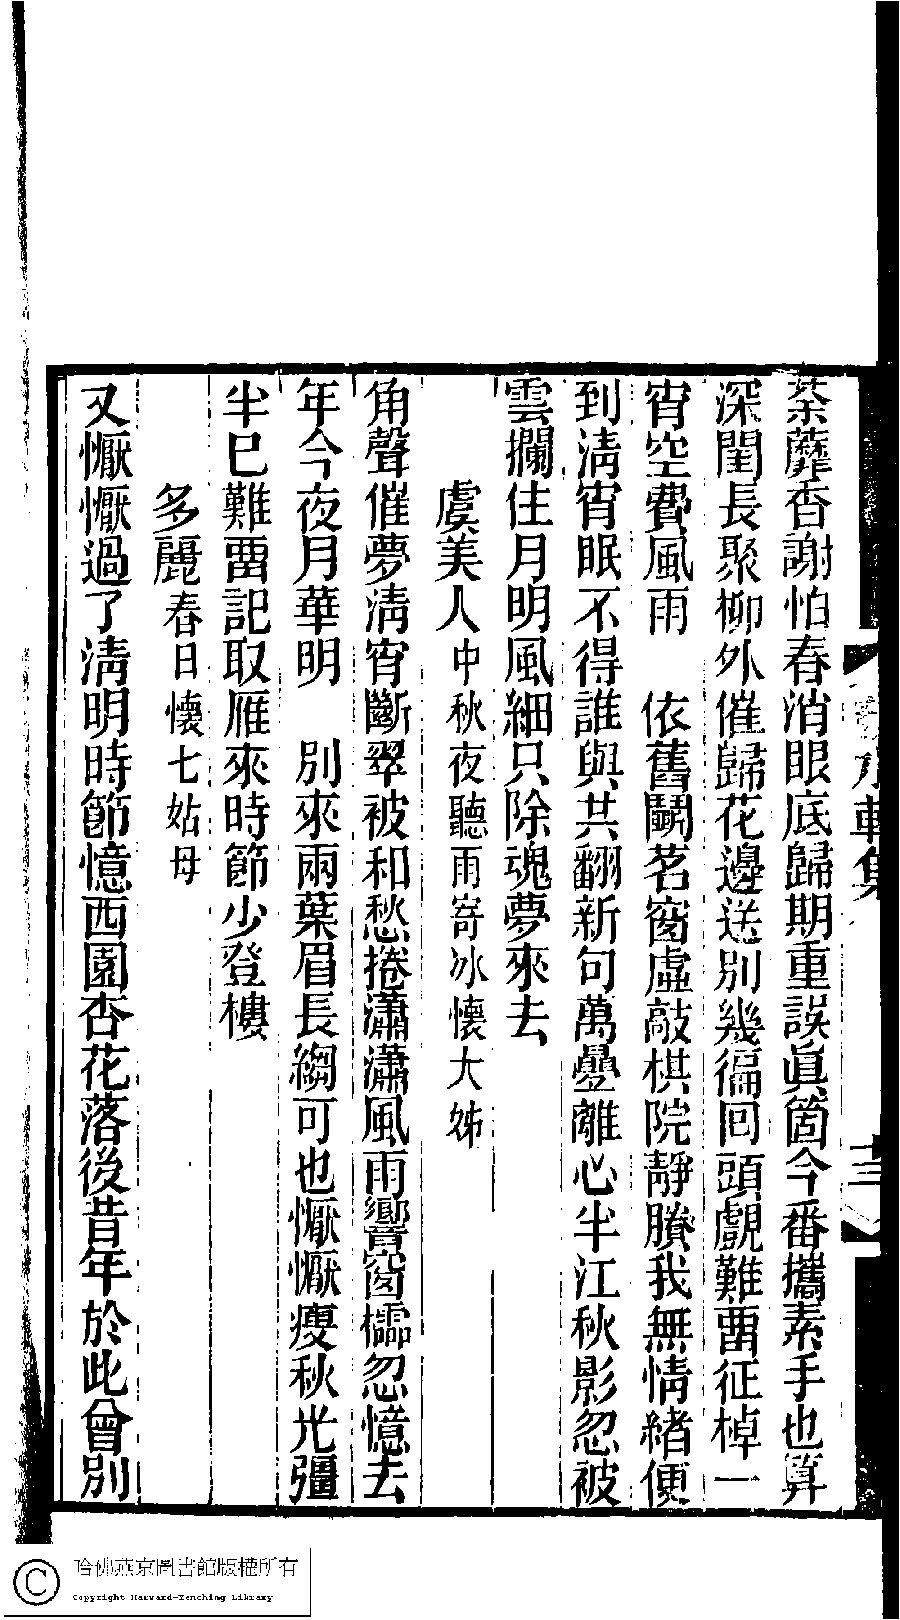 荼蘼香謝怕春消眼底歸期重誤眞箇今番攜素手也算
深閨長聚柳外催歸花邊送別幾徧回頭覷難畱征棹一
宵空費風雨　依舊鬬茗窗虛敲棋院靜賸我無情緒便
到淸宵眠不得誰與共翻新句萬疊離心半江秋影忽被
雲攔住月明風細只除魂夢來去
虞美人中秋夜聽雨寄冰懷大姊
角聲催夢淸宵斷翠被和愁捲瀟瀟風雨響窗櫺忽憶去
年今夜月華明　別來兩葉眉長縐可也懨懨瘦秋光彊
半已難畱記取雁來時節少登樓
多麗春日懷七姑母
又懨懨過了淸明時節憶西園杏花落後昔年於此曾別
軒集
十三
哈佛燕京圖書館版權所有
Copyright Harvard-Yenching Library